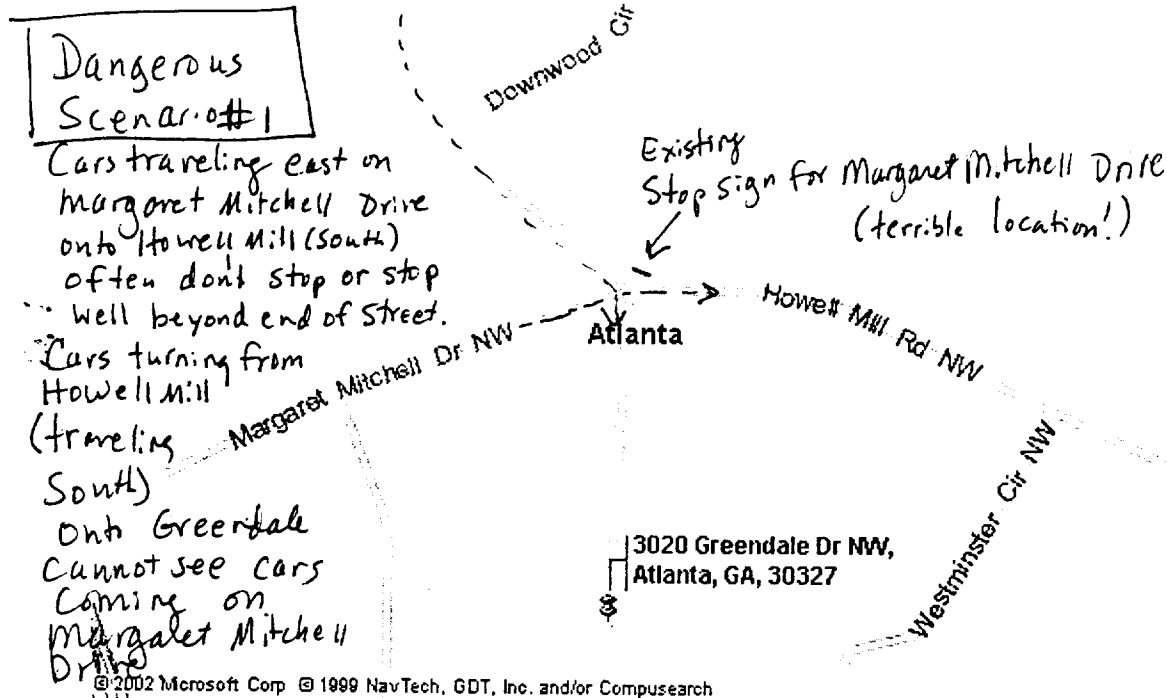 Dangerous
Scenario #1
Cars traveling east on
Margaret Mitchell Drive
onto Howell Mill (South)
often don't stop or stop
well beyond end of street.
Cars turning from
Howell Mill
(traveling
South)
onto Greendale
Cannot see cars
Coming on
Margaret Mitchell
Drive
Downwood Cir
Existing
Stop sign for Margaret Mitchell Drive
(terrible location!)
Howell Mill Rd NW
Atlanta
Margaret Mitchell Dr NW
Westminster Cir NW
3020 Greendale Dr NW,
Atlanta, GA, 30327
© 2002 Microsoft Corp © 1999 NavTech, GDT, Inc. and/or Compusearch